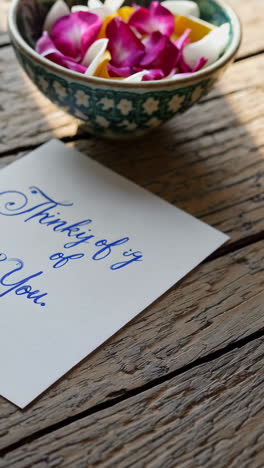 Thinkiy of ig
of
You.